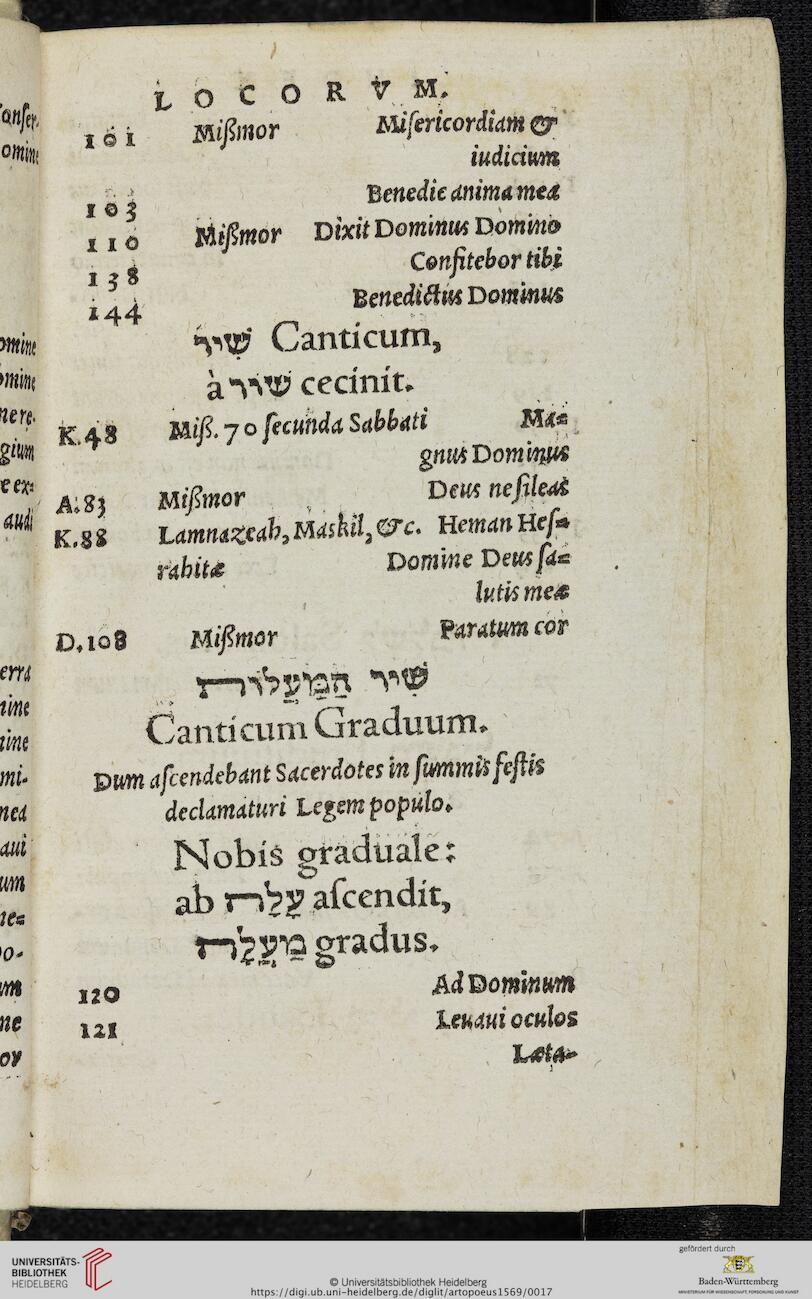 LOCORVM.
101 Mißmor Misericordiam &
iudicium
103 Benedic anima mea
110 Mißmor Dixit Dominus Domino
138 Confitebor tibi
144 Benedictus Dominus
שִׁיר Canticum,
à שׁוּר cecinit.
K.48 Miß. 70 secunda Sabbati Ma=
gnus Dominus
A.83 Mißmor Deus ne sileas
K.88 Lamnazeah, Maskil, &c. Heman Hes=
rahitæ Domine Deus sa=
lutis meæ
D.108 Mißmor Paratum cor
שִׁיר הַמַּעֲלוֹת
Canticum Graduum.
Dum ascendebant Sacerdotes in summis festis
declamaturi Legem populo.
Nobis graduale:
ab עָלָה ascendit,
מַעֲלָה gradus.
120 Ad Dominum
121 Leuaui oculos
Læta=
UNIVERSITÄTS-
BIBLIOTHEK
HEIDELBERG
© Universitätsbibliothek Heidelberg
https://digi.ub.uni-heidelberg.de/diglit/artopoeus1569/0017
gefördert durch
Baden-Württemberg
MINISTERIUM FÜR WISSENSCHAFT, FORSCHUNG UND KUNST